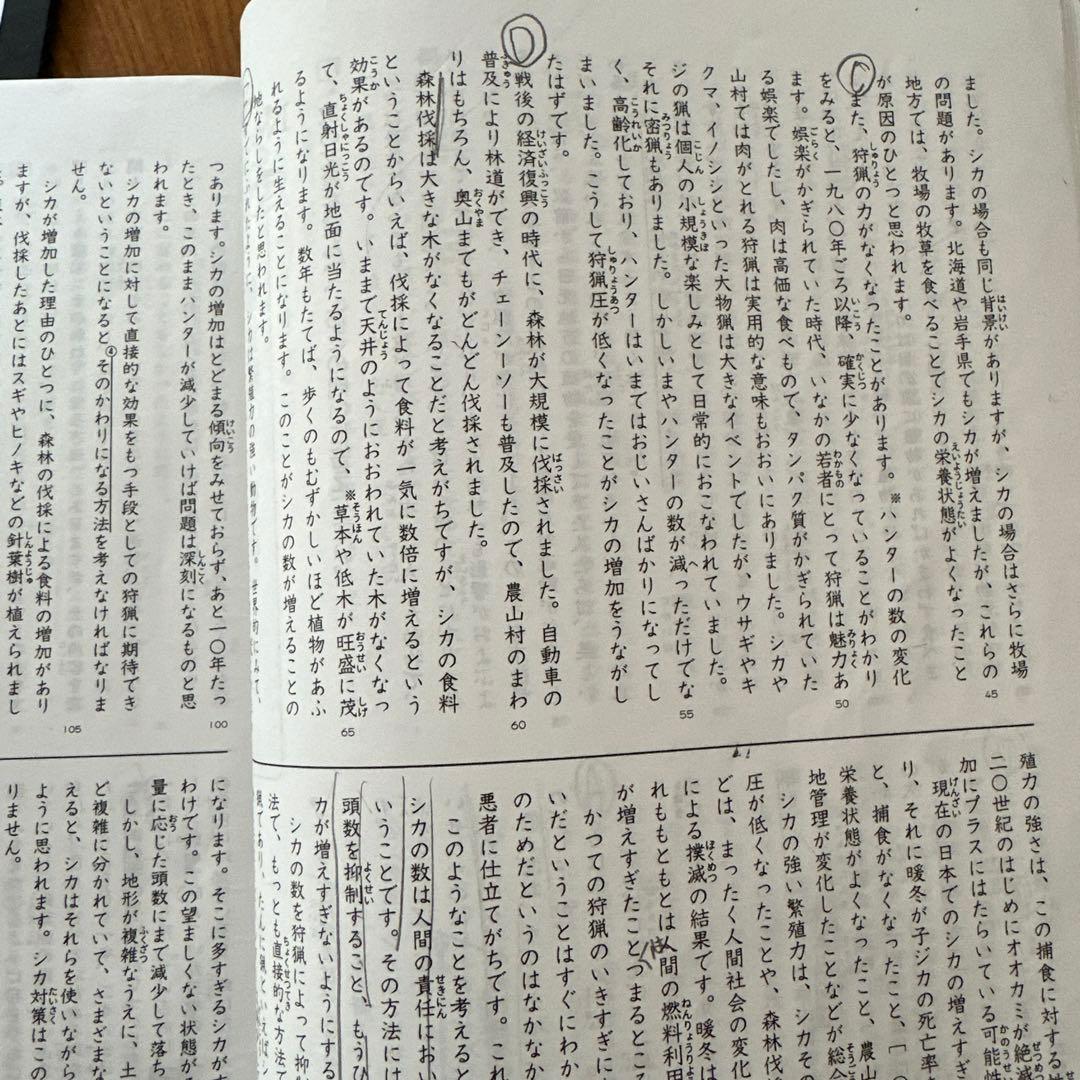 ました。シカの場合も同じ背景がありますが、シカの場合はさらに牧場
の問題があります。北海道や岩手県でもシカが増えましたが、これらの
地方では、牧場の牧草を食べることでシカの栄養状態がよくなったこと
が原因のひとつと思われます。
C また、狩猟の力がなくなったことがあります。※ハンターの数の変化
をみると、一九八〇年ごろ以降、確実に少なくなっていることがわかり
ます。娯楽がかぎられていた時代、いなかの若者にとって狩猟は魅力あ
る娯楽でしたし、肉は高価な食べもので、タンパク質がかぎられていた
山村では肉がとれる狩猟は実用的な意味もおおいにありました。シカや
クマ、イノシシといった大物猟は大きなイベントでしたが、ウサギやキ
ジの猟は個人の小規模な楽しみとして日常的におこなわれていました。
それに密猟もありました。しかしいまやハンターの数が減っただけでな
く、高齢化しており、ハンターはいまではおじいさんばかりになってし
まいました。こうして狩猟圧が低くなったことがシカの増加をうながし
たはずです。
D 戦後の経済復興の時代に、森林が大規模に伐採されました。自動車の
普及により林道ができ、チェーンソーも普及したので、農山村のまわ
りはもちろん、奥山までもがどんどん伐採されました。
森林伐採は大きな木がなくなることだと考えがちですが、シカの食料
ということからいえば、伐採によって食料が一気に数倍に増えるという
効果があるのです。いままで天井のようにおおわれていた木がなくなっ
て、直射日光が地面に当たるようになるので、※草本や低木が旺盛に茂
るようになります。数年もたてば、歩くのもむずかしいほど植物があふ
れるように生えることになります。このことがシカの数が増えることの
地ならしをしたと思われます。
シカは繁殖力の強い動物です。世界的にみて、
45
50
55
60
65
殖力の強さは、この捕食に対する
二〇世紀のはじめにオオカミが絶滅
加にプラスにはたらいている可能性
現在の日本でのシカの増えすぎ
り、それに暖冬が子ジカの死亡率
と、捕食がなくなったこと、〔
栄養状態がよくなったこと、農山
地管理が変化したことなどが総合
シカの強い繁殖力は、シカそ
圧が低くなったことや、森林伐
どは、まったく人間社会の変化
による撲滅の結果です。暖冬は
れももともとは人間の燃料利用
が増えすぎたことつまるところ
かつての狩猟のいきすぎに
いだということはすぐにわか
のためだというのはなかなか
悪者に仕立てがちです。こ
このようなことを考えると
シカの数は人間の責任におい
いうことです。その方法には
頭数を抑制すること、もうひ
力が増えすぎないようにする
シカの数を狩猟によって抑
法で、もっとも直接的な方法で
つあります。シカの増加はとどまる傾向をみせておらず、あと一〇年たっ
たとき、このままハンターが減少していけば問題は深刻になるものと思
われます。
シカの増加に対して直接的な効果をもつ手段としての狩猟に期待でき
ないということになると④そのかわりになる方法を考えなければなりま
せん。
シカが増加した理由のひとつに、森林の伐採による食料の増加があり
ますが、伐採したあとにはスギやヒノキなどの針葉樹が植えられまし
100
105
になります。そこに多すぎるシカが
わけです。この望ましくない状態が
量に応じた頭数にまで減少して落ち
しかし、地形が複雑なうえに、土
ど複雑に分かれていて、さまざまな
えると、シカはそれらを使いながら
ように思われます。シカ対策はこの
りません。